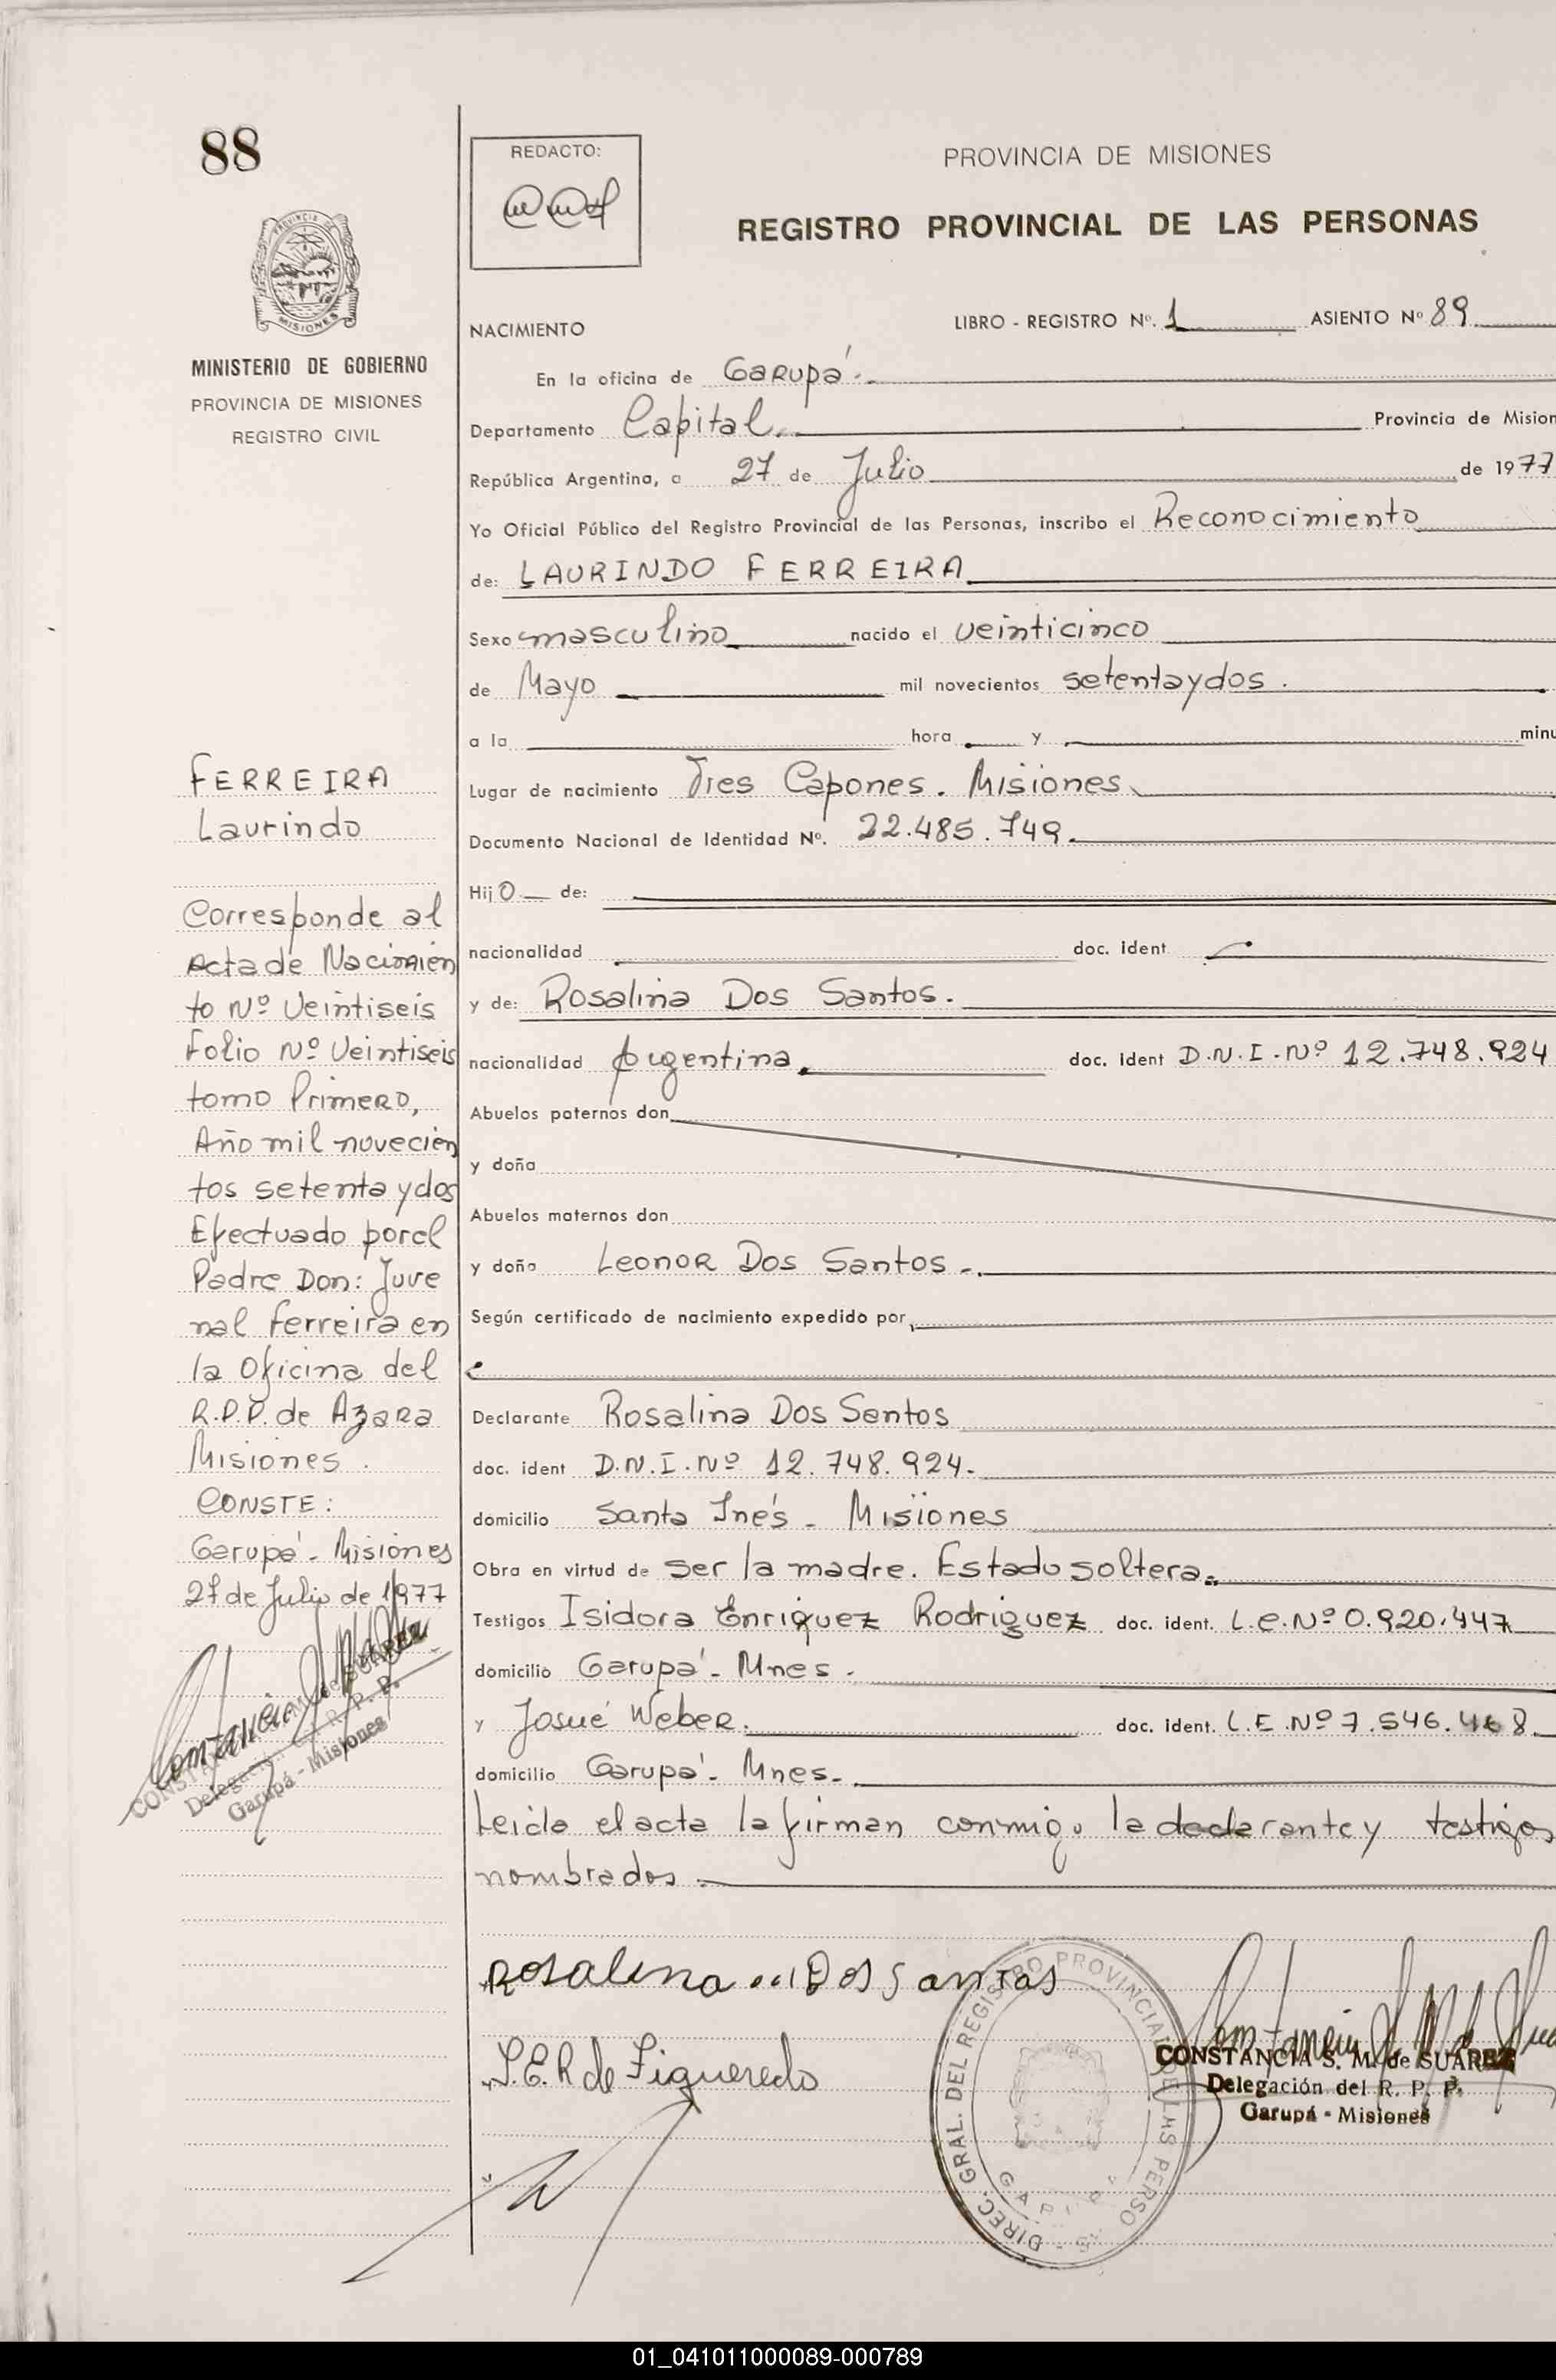 88
REDACTO:
PROVINCIA DE MISIONES
REGISTRO PROVINCIAL DE LAS PERSONAS
MISIONES
MINISTERIO DE GOBIERNO
PROVINCIA DE MISIONES
REGISTRO CIVIL
NACIMIENTO
LIBRO - REGISTRO Nº. 1 ASIENTO Nº 89
En la oficina de Garupá.
Departamento Capital. Provincia de Mision
República Argentina, a 27 de Julio de 1977
Yo Oficial Público del Registro Provincial de las Personas, inscribo el Reconocimiento
de: LAURINDO FERREIRA
Sexo masculino nacido el veinticinco
de Mayo mil novecientos setentaydos.
a la hora y minu
Lugar de nacimiento Tres Capones. Misiones
Documento Nacional de Identidad Nº. 22.485.749.
Hijo de:
nacionalidad doc. ident
y de: Rosalina Dos Santos.
nacionalidad Argentina. doc. ident D.N.I.Nº 12.748.924
Abuelos paternos don
y doña
Abuelos maternos don
y doña Leonor Dos Santos.
Según certificado de nacimiento expedido por
Declarante Rosalina Dos Santos
doc. ident D.N.I.Nº 12.748.924.
domicilio Santa Inés - Misiones
Obra en virtud de ser la madre. Estado soltera.
Testigos Isidora Enriquez Rodriguez doc. ident. L.C.Nº 0.920.447
domicilio Garupá - Mnes.
y Josué Weber. doc. ident. L.E.Nº 7.546.468
domicilio Garupá - Mnes.
Leida el acta la firman conmigo la declarante y testigos
nombrados.
FERREIRA
Laurindo
Corresponde al
Acta de Nacimien
to Nº Veintiseis
Folio Nº Veintiseis
tomo Primero,
Año mil novecien
tos setenta y dos
Efectuado por el
Padre Don: Juve
nal Ferreira en
la Oficina del
R.P.P. de Azara
Misiones.
CONSTE:
Garupá - Misiones
27 de Julio de 1977
Garupá - Misiones
Rosalina Dos Santos
I.E.R de Figueredo
DIREC. GRAL. DEL REGISTRO PROVINCIAL DE LAS PERSO
CONSTANCIA S. M. de SUAREZ
Delegación del R. P. P.
Garupá - Misiones
01_041011000089-000789